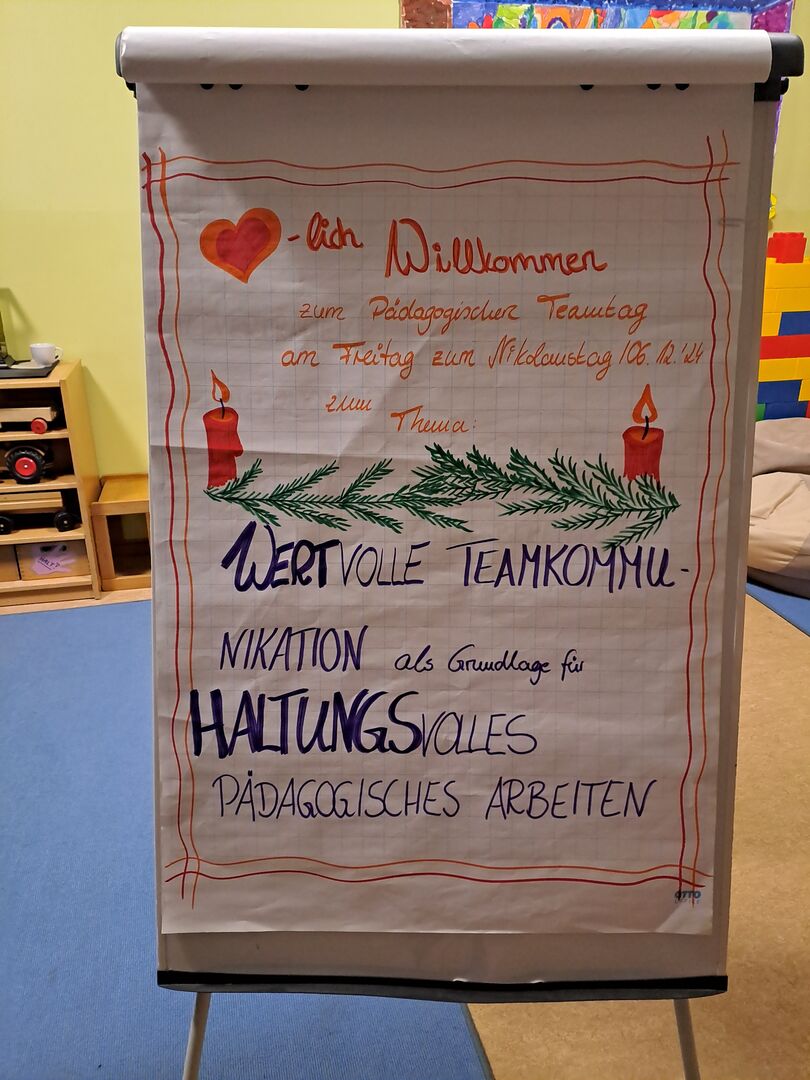 -lich Willkommen
zum Pädagogischen Teamtag
am Freitag zum Nikolaustag /06.12.'24
zum Thema:
WERTVOLLE TEAMKOMMU-
NIKATION als Grundlage für
HALTUNGSVOLLES
PÄDAGOGISCHES ARBEITEN
OTTO